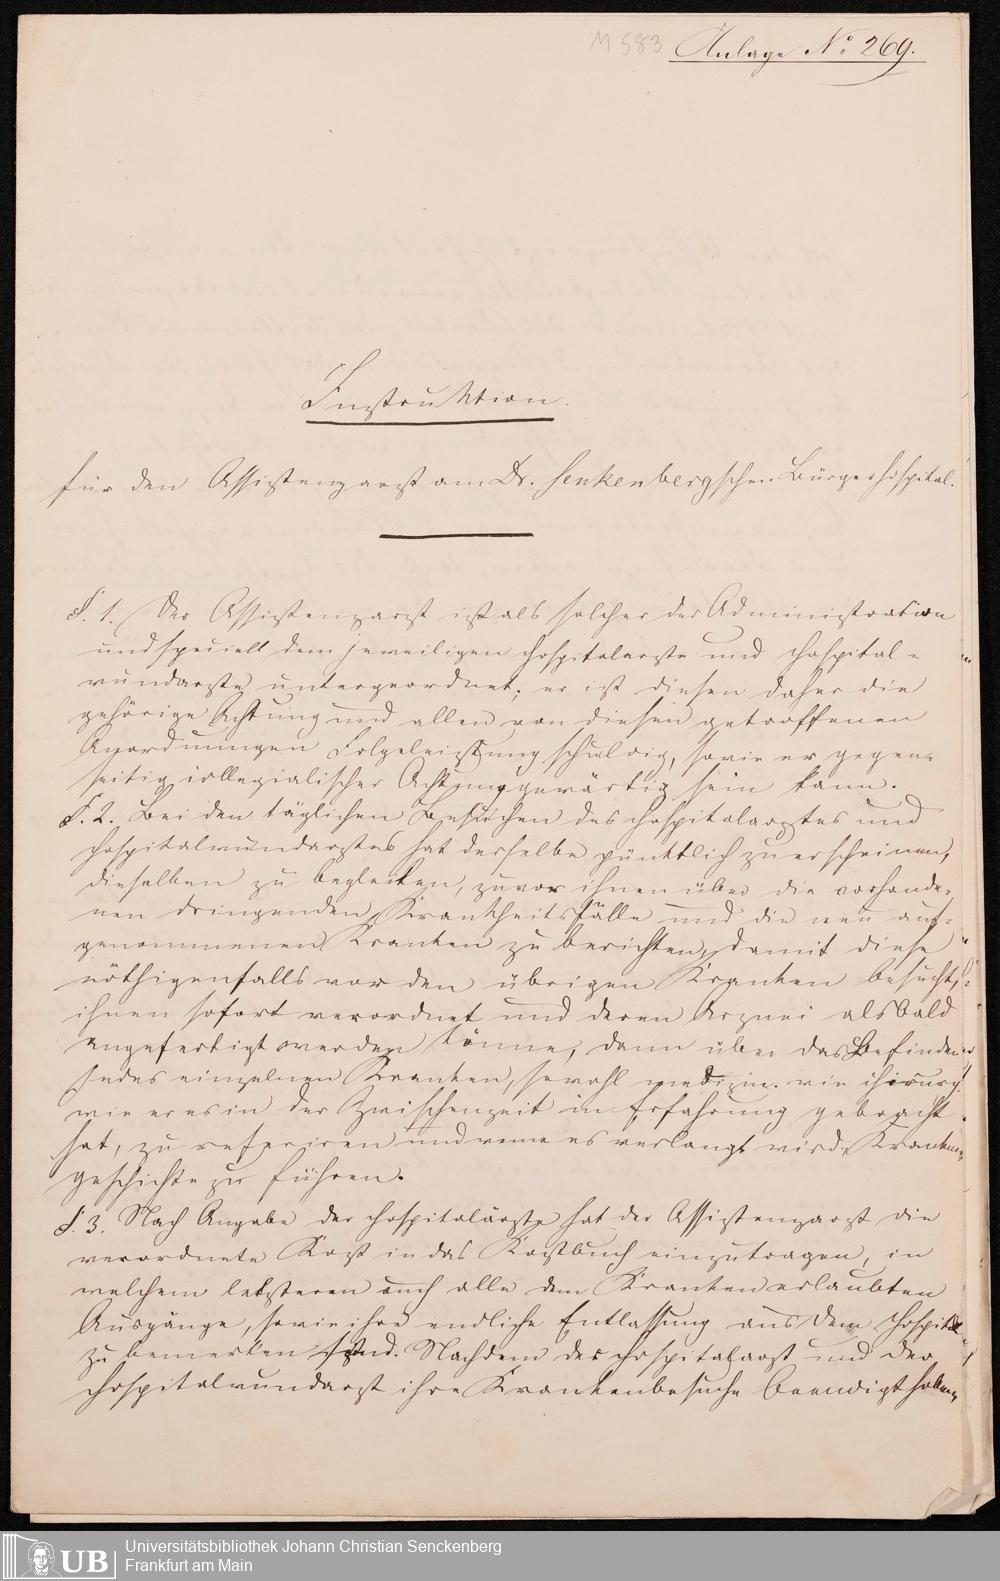 M 583
Anlage No 269.
Instruktion
für den Assistenzarzt am Dr. Senkenbergschen Bürgerhospital.
§. 1. Der Assistenzarzt ist als solcher der Administration
und speciell dem jeweiligen Hospitalarzte und Hospital=
wundarzte untergeordnet; er ist diesen daher die
gehörige Achtung und allen von diesen getroffenen
Anordnungen Folgeleistung schuldig, sowie er gegen=
seitig collegialischer Achtung gewärtig sein kann.
§. 2. Bei den täglichen Besuchen des Hospitalarztes und
Hospitalwundarztes hat derselbe pünktlich zu erscheinen,
dieselben zu begleiten, zuvor ihnen über die vorhande=
nen dringenden Krankheitsfälle und die neu auf=
genommenen Kranken zu berichten, damit diese
nöthigenfalls vor den übrigen Kranken besucht,
ihnen sofort verordnet und deren Arznei alsbald
angefertigt werden könne, dann über das Befinden
jedes einzelnen Kranken, sowohl medizin. wie chirurg.
wie er es in der Zwischenzeit in Erfahrung gebracht
hat, zu referiren und wenn es verlangt wird, Kranken
geschichte zu führen.
§. 3. Nach Angabe der Hospitalärzte hat der Assistenzarzt die
verordnete Kost in das Kostbuch einzutragen, in
welchem letzteren auch alle dem Kranken erlaubten
Ausgänge, sowie ihre endliche Entlassung aus dem Hospital
zu bemerken sind. Nachdem der Hospitalarzt und der
Hospitalwundarzt ihre Krankenbesuche beendigt haben,
UB
Universitätsbibliothek Johann Christian Senckenberg
Frankfurt am Main